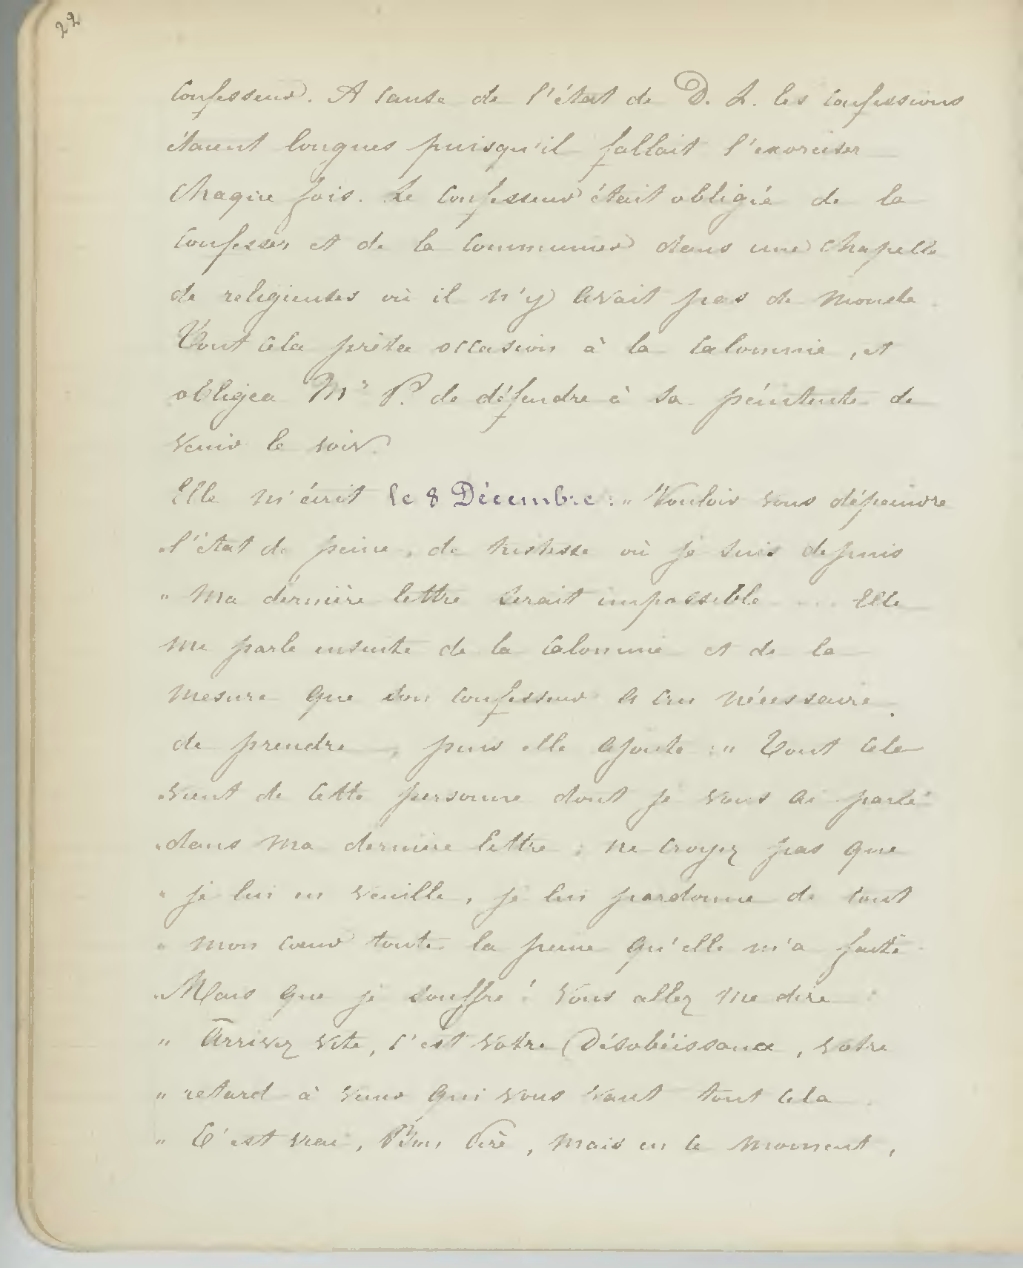 22
Confesseur. A cause de l'état de D. L. les confessions
étaient longues puisqu'il fallait l'exorciser
chaque fois. Le Confesseur était obligé de la
confesser et de la communier dans une chapelle
de religieuses où il n'y avait pas de monde.
Tout cela prêta occasion à la calomnie, et
obligea Mr P. de défendre à sa pénitente de
venir le soir.
Elle m'écrit le 8 Décembre : „ Vouloir vous dépeindre
„ l'état de peine, de tristesse où je suis depuis
„ ma dernière lettre serait impossible ... Elle
me parle ensuite de la calomnie et de la
mesure que son confesseur a cru nécessaire
de prendre, puis elle ajoute : „ Tout cela
„ vient de cette personne dont je vous ai parlé
„ dans ma dernière lettre ; ne croyez pas que
„ je lui en veuille, je lui pardonne de tout
„ mon cœur toute la peine qu'elle m'a faite.
„ Mais que je souffre ! Vous allez me dire :
„ Arrivez vite, c'est votre Désobéissance, votre
„ retard à venir qui vous vaut tout cela.
„ C'est vrai, Mon Père, mais en ce moment,